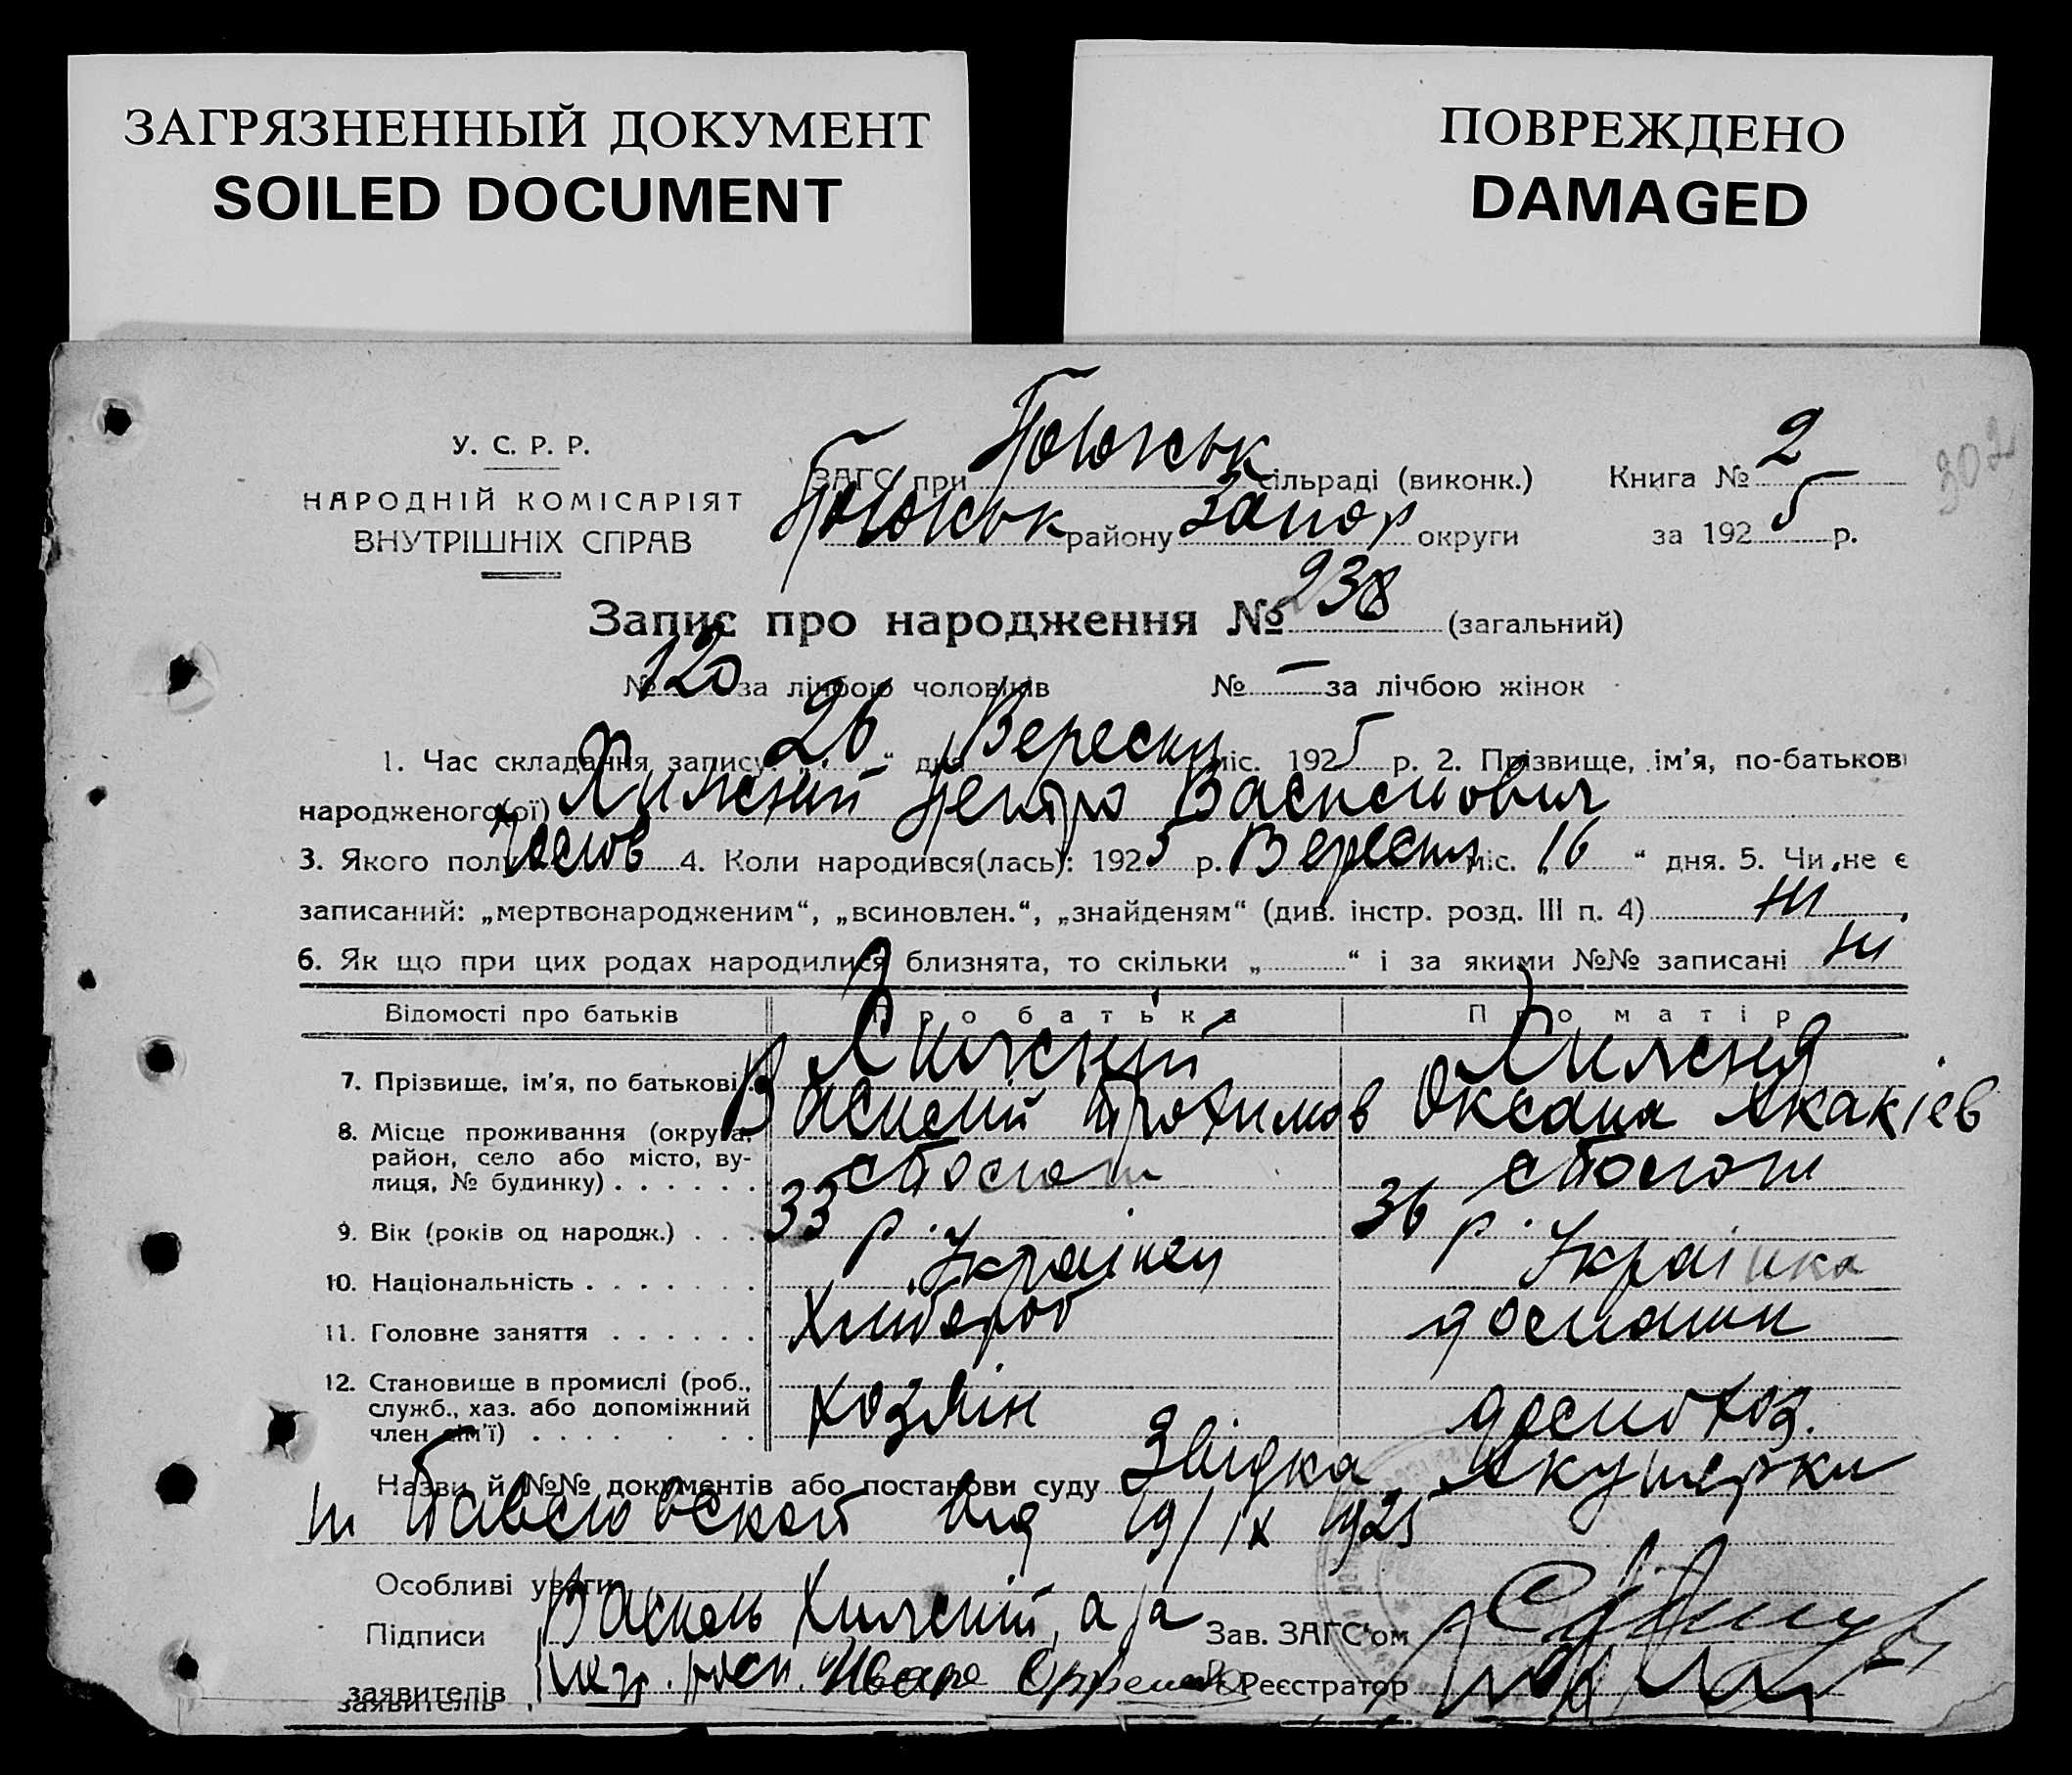 ЗАГРЯЗНЕННЫЙ ДОКУМЕНТ
SOILED DOCUMENT
ПОВРЕЖДЕНО
DAMAGED
302
У. С. Р. Р.
НАРОДНІЙ КОМІСАРІЯТ
ВНУТРІШНІХ СПРАВ
ЗАГС при Пологськ сільраді (виконк.)
Пологськ району Запор округи
Книга № 2
за 1925 р.
Запис про народження № 238 (загальний)
№ 120 за лічбою чоловіків № — за лічбою жінок
1. Час складання запису „26“ дня Вересня міс. 1925 р. 2. Прізвище, ім'я, по-батькові
народженого(ої) Хижний Петро Васильович
3. Якого полу чолов 4. Коли народився(лась): 1925 р. Вересня міс. „16“ дня. 5. Чи не є
записаний: „мертвонародженим“, „всиновлен.“, „знайденям“ (див. інстр. розд. III п. 4) ні
6. Як що при цих родах народилися близнята, то скільки „ “ і за якими №№ записані ні
Відомості про батьків Про батька Про матір
7. Прізвище, ім'я, по батькові
Василий Трохимов Оксана Якакіев
8. Місце проживання (округа, район, село або місто, вулиця, № будинку)
с Пологи с Пологи
9. Вік (років од народж.) 33 р. 36 р.
10. Національність Українец Українка
11. Головне заняття Хлібороб домашн
12. Становище в промислі (роб., служб., хаз. або допоміжний член сім'ї) хозяін домохоз.
Назви й №№ документів або постанови суду Звідка Акушерки
Павловской від 19/IX 1925
Особливі уваги
Підписи Василь а за
заявителів роси. Иван
Зав. ЗАГС'ом
Реєстратор